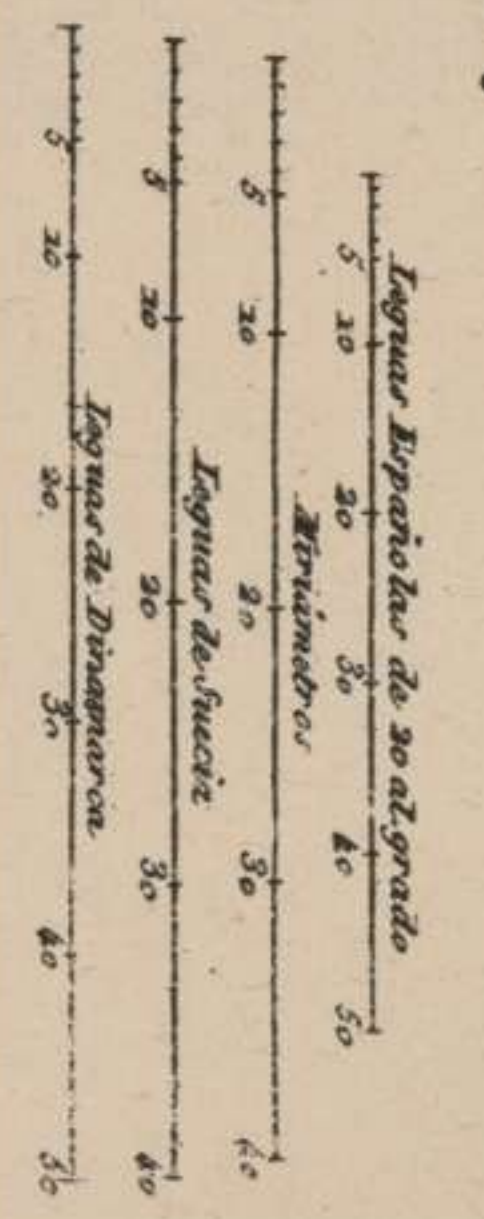 Leguas Españolas de 20 al grado
5 10 20 30 40 50
Miriámetros
5 10 20 30 40
Leguas de Suecia
5 10 20 30 40
Leguas de Dinamarca
5 10 20 30 40 50